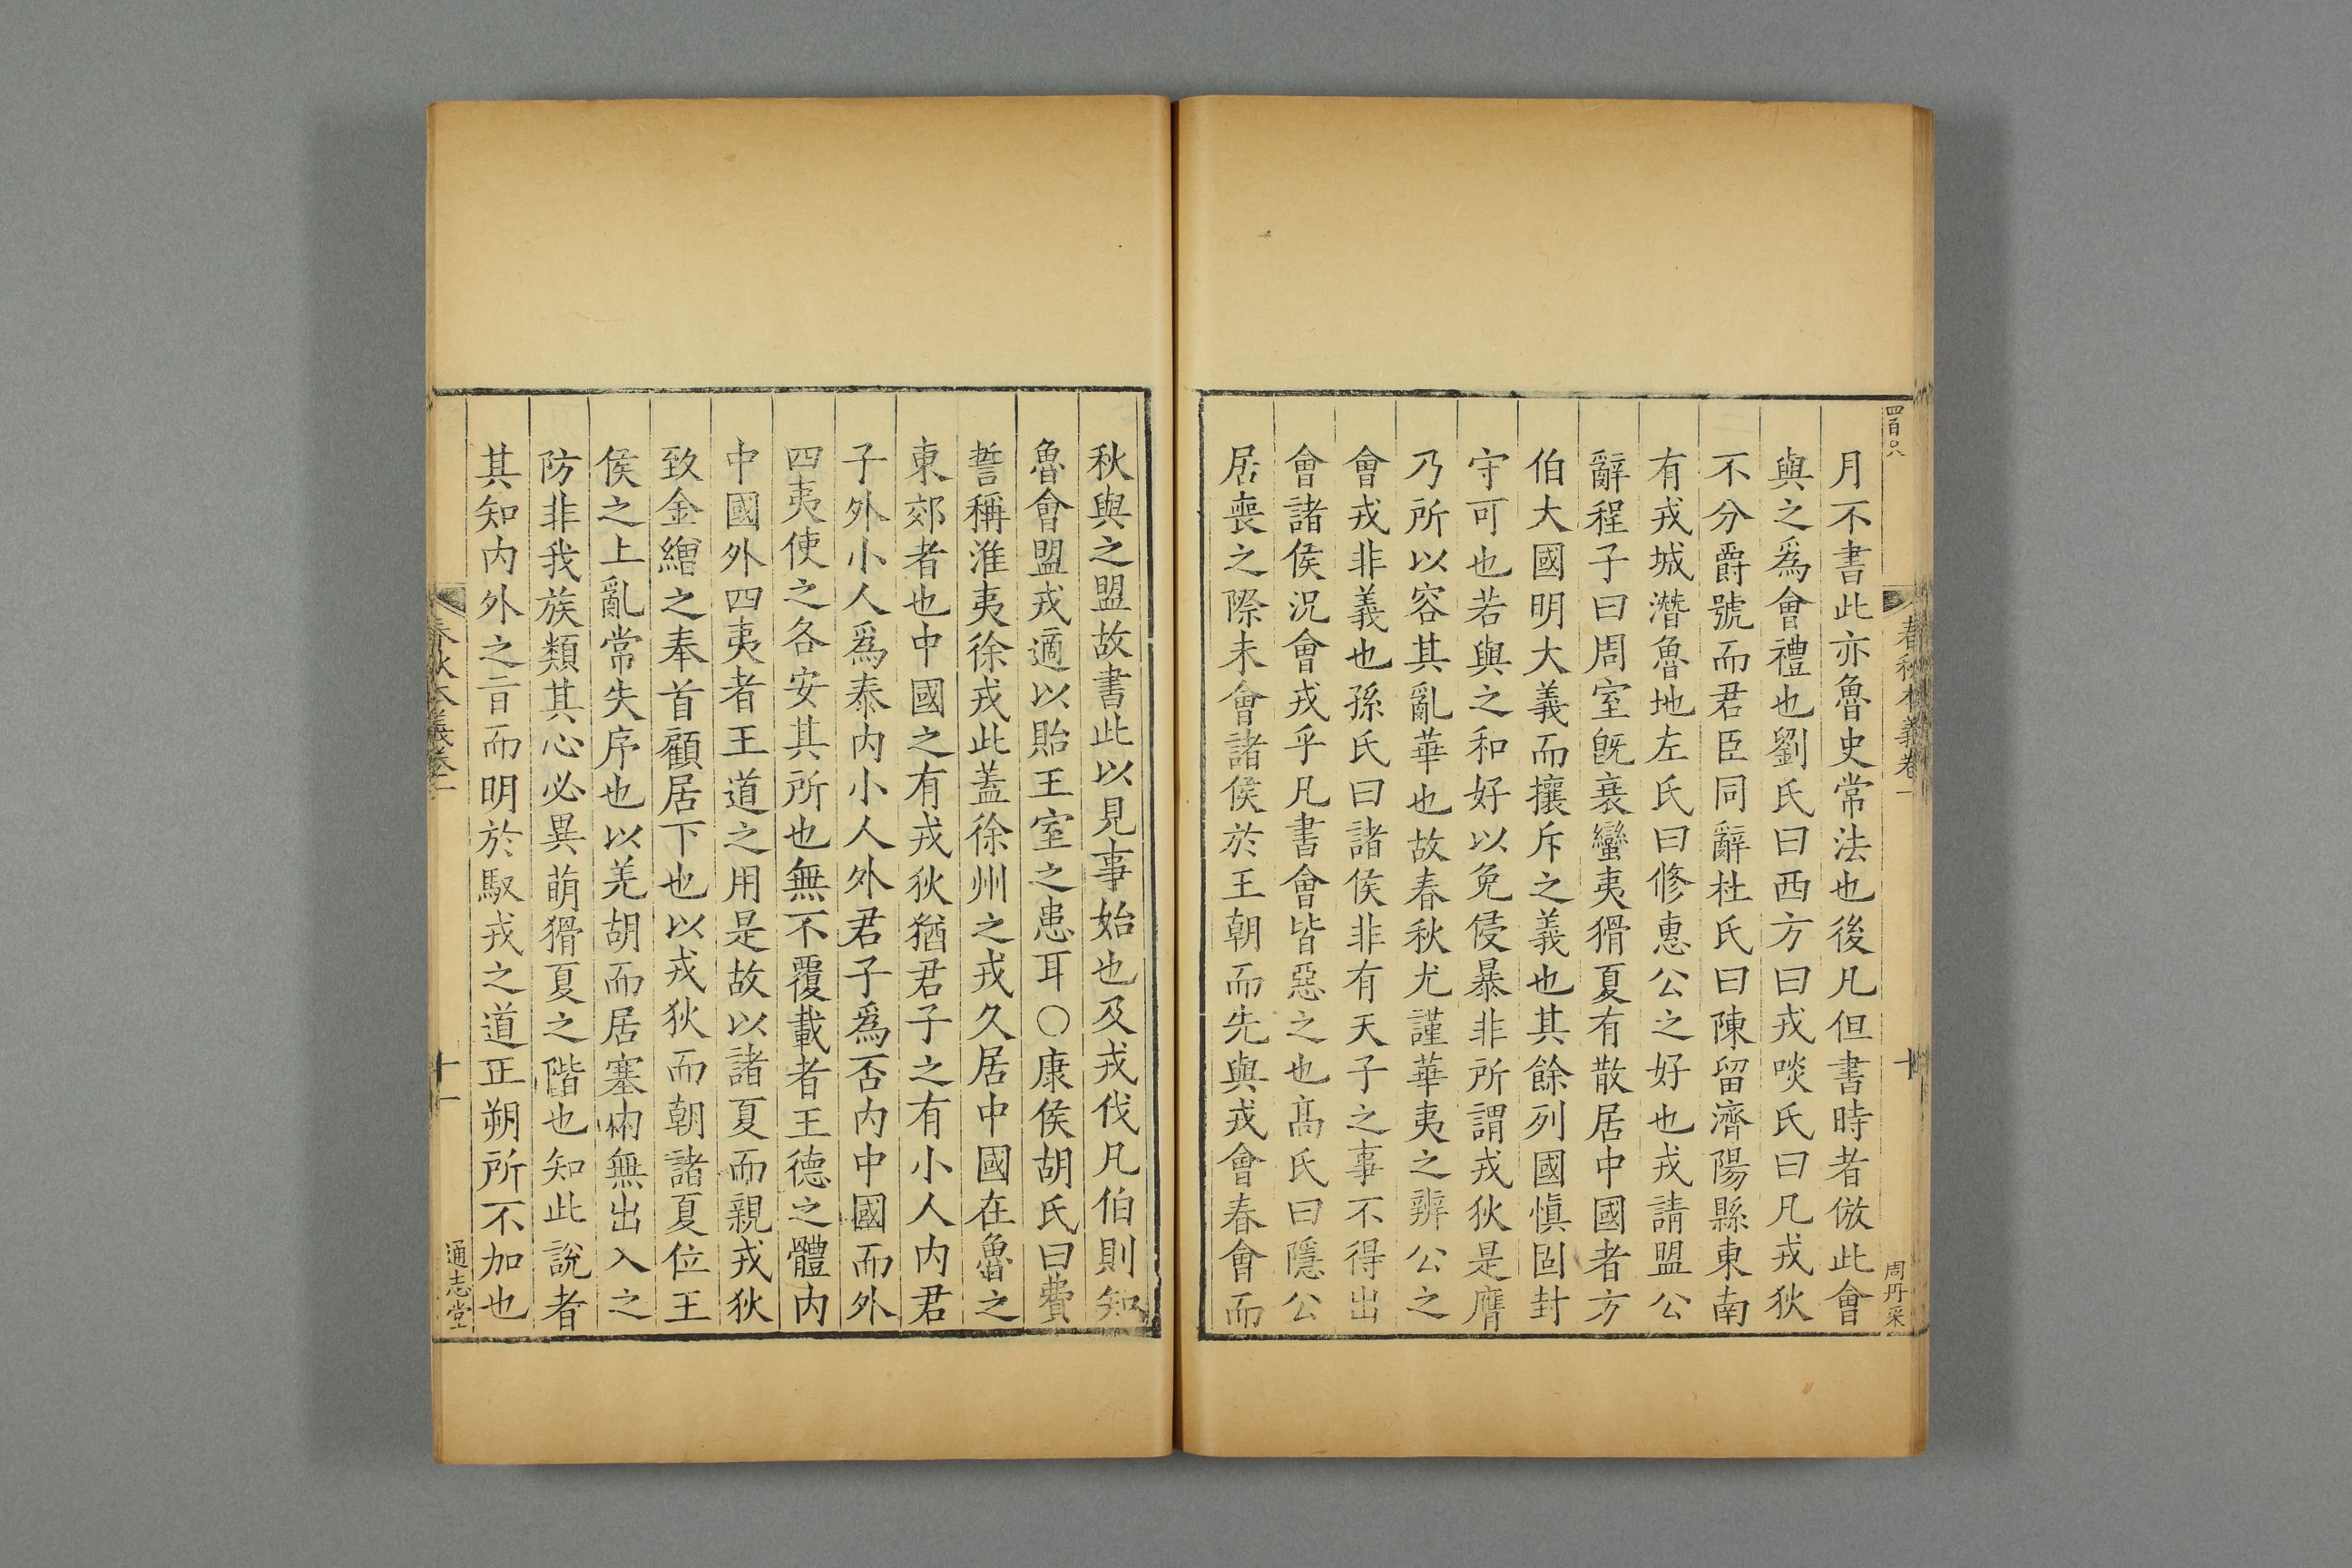 四百〇八
春秋本義卷一
十
周丹采
月不書此亦魯史常法也後凡但書時者倣此會
與之爲會禮也劉氏曰西方曰戎啖氏曰凡戎狄
不分爵號而君臣同辭杜氏曰陳留濟陽縣東南
有戎城潛魯地左氏曰修惠公之好也戎請盟公
辭程子曰周室旣衰蠻夷猾夏有散居中國者方
伯大國明大義而攘斥之義也其餘列國愼固封
守可也若與之和好以免侵暴非所謂戎狄是膺
乃所以容其亂華也故春秋尤謹華夷之辨公之
會戎非義也孫氏曰諸侯非有天子之事不得出
會諸侯況會戎乎凡書會皆惡之也高氏曰隱公
居喪之際未會諸侯於王朝而先與戎會春會而
秋與之盟故書此以見事始也及戎伐凡伯則知
魯會盟戎適以貽王室之患耳〇康侯胡氏曰費
誓稱淮夷徐戎此蓋徐州之戎久居中國在魯之
東郊者也中國之有戎狄猶君子之有小人内君
子外小人爲泰内小人外君子爲否内中國而外
四夷使之各安其所也無不覆載者王德之體内
中國外四夷者王道之用是故以諸夏而親戎狄
致金繒之奉首顧居下也以戎狄而朝諸夏位王
侯之上亂常失序也以羌胡而居塞内無出入之
防非我族類其心必異萌猾夏之階也知此說者
其知内外之旨而明於馭戎之道正朔所不加也
春秋本義卷一
十一
通志堂